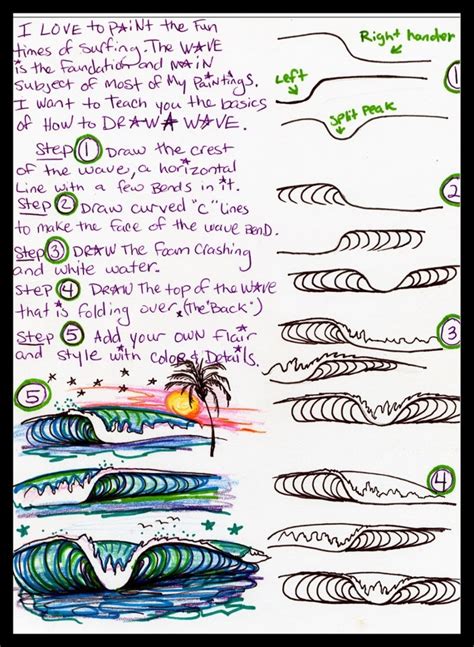 I LOVE to PAINT the Fun
times of Surfing. The WAVE
is the Foundation and MAIN
subject of most of My PaiNtings.
I want to Teach you the basics
of How to DRAW A WAVE.
Step 1 Draw the crest
of the wave, a horizontal
Line with a few Bends in it.
Step 2 Draw curved "C" lines
to make the face of the wave BenD.
Step 3 DRAW The Foam Crashing
and white water.
Step 4 DRAW The top of the WAVE
that is folding over. (The "Back")
Step 5 Add your own flair
and style with color & Details.
Right hander
1
Left
Split Peak
2
3
4
5